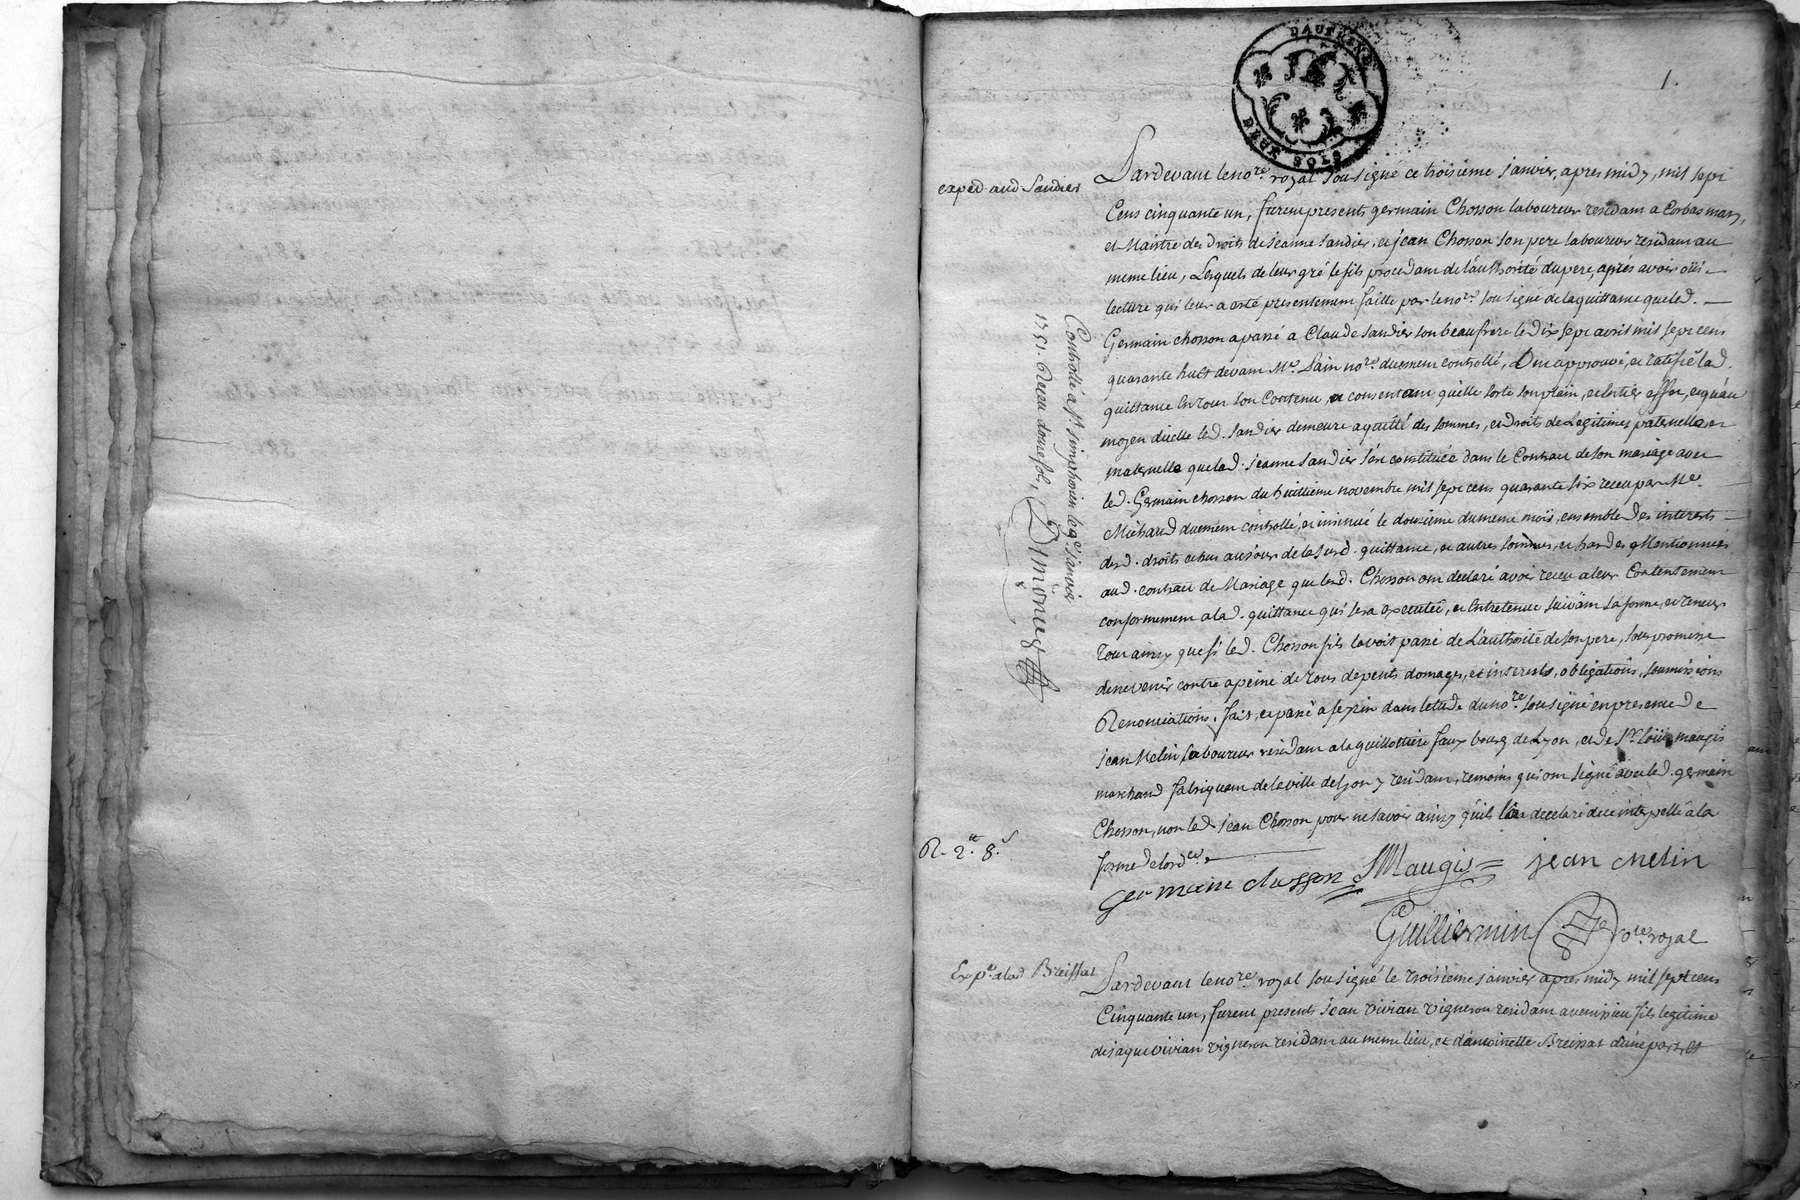 1.
DAUPHINE
DEUX SOLS
exped aud Sandier
Pardevant le no.re royal sousigné ce troisième janvier apres midy, mil sept
Cens cinquante un, furent presents germain Chosson laboureur residant a Corbas mary,
et Maistre des Droits de jeanne Sandier, et jean Chosson son pere laboureur residant au
meme lieu, Lesquels de leur gré le fils procedant de l'authorité du pere, après avoir oüi
lecture qui leur a esté presentement faitte par le no.re sousigné de la quittance que led.
Germain chosson a passé a Claude Sandier son beaufrere le dix sept avril mil sept cens
quarante huit devant M.e Lain no.re duement controllé, Ont approuvé, et ratifié lad.
quittance en tout son Contenu, et consentent qu'elle sorte son plain, et entier effet, et qu'au
moyen d'icelle led. Sandier demeure aquitté des sommes, et droits de Legitimes paternelle et
maternelle que lad. jeanne Sandier s'est constituée dans le Contract de son mariage avec
led. Germain chosson du huitieme novembre mil sept cens quarante six receu par M.e
Michaud duement controllé, et insinué le douzieme du meme mois, ensemble des interests
desd. droits echus au jour de la susd. quittance, et autres sommes, et hardes Mentionnées
aud. contract de Mariage que lesd. Chosson ont declaré avoir receu a leur Contentement
conformement a lad. quittance qui sera executée, et entretenue suivant sa forme, et teneur
tout ainsy que si led. Chosson fils l'avoit passé de L'authorité de son pere, sous promesse
de ne venir contre a peine de tous depents domages, et interests, obligations, soumissions
Renonciations. fait, et passé a feyzin dans l'etude du no.re sousigné en presence de
jean Melin Laboureur residant a la guillottiere faux bourg de Lyon, et de S.r Loüis maugis
marchand fabriquant de la ville de Lyon y residant, temoins qui ont signé avec led. germain
Chosson, non led. jean Chosson pour ne savoir ainsy qu'il l'a declaré de ce interpellé a la
forme de lord.ce
Controllé a S.t simphorien le 9.e janvier
1751. Receu douze sols,
R. 2.tt 8.s
germain chosson Maugis jean melin
Guilliermin no.re royal
Exp.é a lad Breissat
Pardevant le no.re royal sousigné le troisième janvier apres midy mil sept cens
Cinquante un, furent presents jean Vivian Vigneron residant a venissieu fils legitime
de jaque Vivian vigneron residant au meme lieu, et d'antoinette Breissat d'une part, et